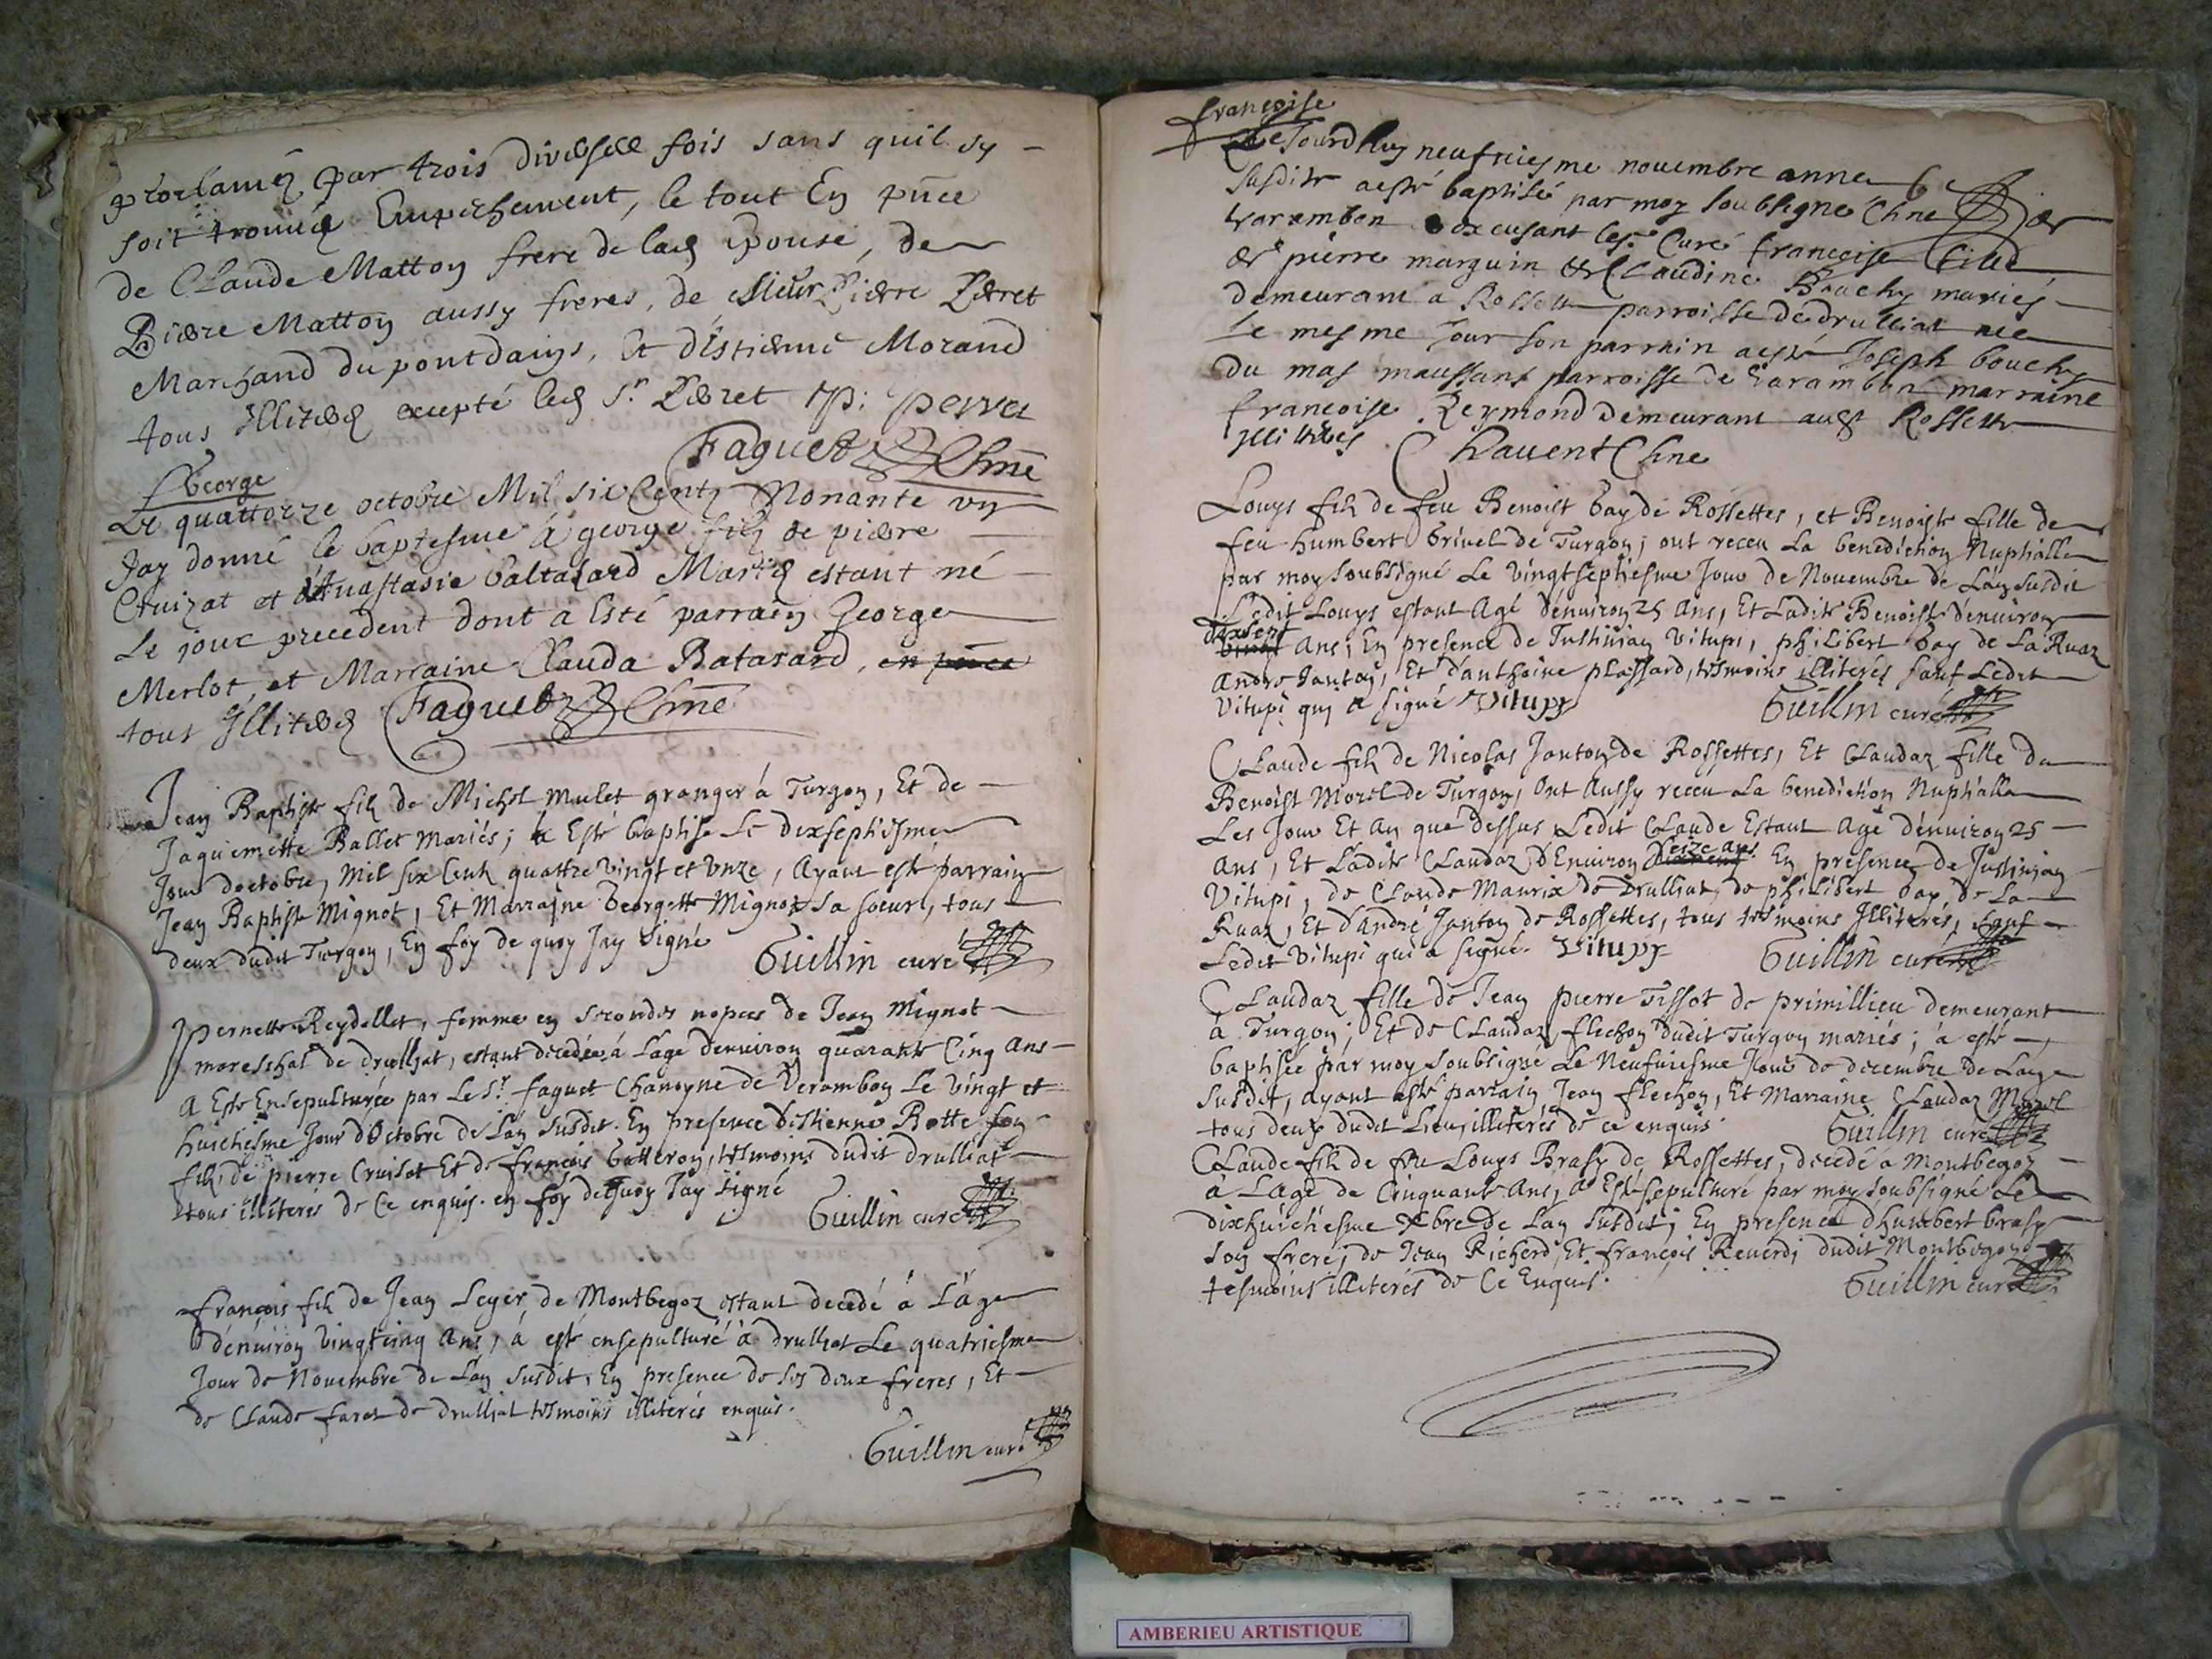 proclamés par trois diverses fois sans quil sy
soit trouvé Empechement, le tout En pnce
de Claude Matton frere de lad Epouse, de
Pierre Matton aussy freres, de Sieur Pierre Perret
Marchand du pontdains, Et destienne Morand
tous Illiteres excepté led Sr. Perret P: Perret
Faguet Chne
George
Le quattorze octobre Mil six Cents Nonante un
Jay donné le baptesme a george fils de pierre
Cruizat et d'Anastasie baltasard Mariés estant né
Le jour precedent dont a Esté parrain George
Merlot, et Marraine Clauda Batasard, en pnce
tous Illiteres Faguet Chne
Jean Baptiste fils de Michel Mulet granger á Turgon, Et de
Jaquemette Ballet Mariés; a Esté baptise Le dixseptiesme
Jour doctobre, mil six Cents quattre vingt et Unze, Ayant esté parrain
Jean Baptiste Mignot, Et Marraine Georgette Mignot sa soeur, tous
deux dudit Turgon, En foy de quoy Jay Signé Guillin curé
Pernette Reydellet, femme en secondes nopces de Jean Mignot
mareschal de drulliat, estant decedée á Lage denviron quarante Cinq ans
a Esté Ensepulturée par Le Sr. faguet Chanoyne de Verambon Le vingt et
huictiesme Jour dOctobre de Lan Susdit. En presence dEstienne Rotte son
fils, de pierre Cruisat Et de françois Gutteron, tesmoins dudit drulliat
tous illiterés de Ce enquis. en foy dequoy Jay signé
Guillin curé
françois fils de Jean Leger de Montbegoz estant decedé á Láge
dénuiron vingtcinq ans, á esté ensepulturé à drulliat Le quatriesme
Jour de Nouembre de Lan Susdit, En presence de ses deux freres, Et
de Claude faret de drulliat tesmoins illiterés enquis.
Guillin curé
françoise
Cejourdhuy neufviesme nouembre annee
susditte aesté baptisé par moy soubsigné Chne de
varambon excusant le sr Curé françoise fille
de pierre marguin et Claudine Bouchy mariés
demeurant a Rossette parroisse de drulliat nee
le mesme jour son parrain aesté Joseph bouchy
du mas maussant parroisse de varambon marraine
françoise Reymond demeurant audt Rossette
Illitérés Chauent Chne
Louys fils de feu Benoist bay de Rossettes, et Benoiste fille de
feu humbert brivel de Turgon; ont receu La benediction Nuptialle
par moy soubsigné Le vingtseptiesme Jour de Nouembre de Lan susdit
Ledit Louys estant Agé dénuiron 25 ans, Et Ladite Benoiste dénuiron
dixsept
vingt ans, En presence de Justinian Vitupi, philibert bay de La Ruaz
Andre Janton, Et d'anthoine plassard, tesmoins illiterés sauf Ledit
Vitupi qui a signé Vitupy Guillin curé
Claude fils de Nicolas Janton de Rossettes, Et Claudaz fille de
Benoist Morel de Turgon, Ont Aussy receu La benediction Nuptialle
Les Jour Et An que dessus Ledit Claude Estant Agé dénuiron 25
ans, Et Ladite Claudaz dEnuiron seize ans. En presence de Justinian
Vitupi, de Claude Maurix de Drulliat, de philibert bay de La
Ruaz, Et d'andré Janton de Rossettes, tous tesmoins Illiterés, sauf
Ledit Vitupi qui a signé. Vitupy Guillin curé
Claudaz fille de Jean pierre Tissot de primillieu demeurant
à Turgon; Et de Claudaz flechon dudit Turgon mariés; á esté
baptisée par moy soubsigné Le Neufuiesme Jour de decembre de Lan
susdit, ayant esté parrain Jean flechon, Et Marraine Claudaz Morel
tous deux dudit Lieu illiterés de ce enquis Guillin curé
Claude fils de feu Louys Brasy de Rossettes, decedé a Montbegoz
à Lagé de Cinquante Ans, a Esté sepulturé par moy soubsigné Le
dixhuictiesme Xbre de Lan Susdit; En presence dhumbert brasy
son frere, de Jean Richerd, Et françois Reuerdi dudit Montbegoz
tesmoins illiterés de Ce Enquis. Guillin curé
AMBERIEU ARTISTIQUE